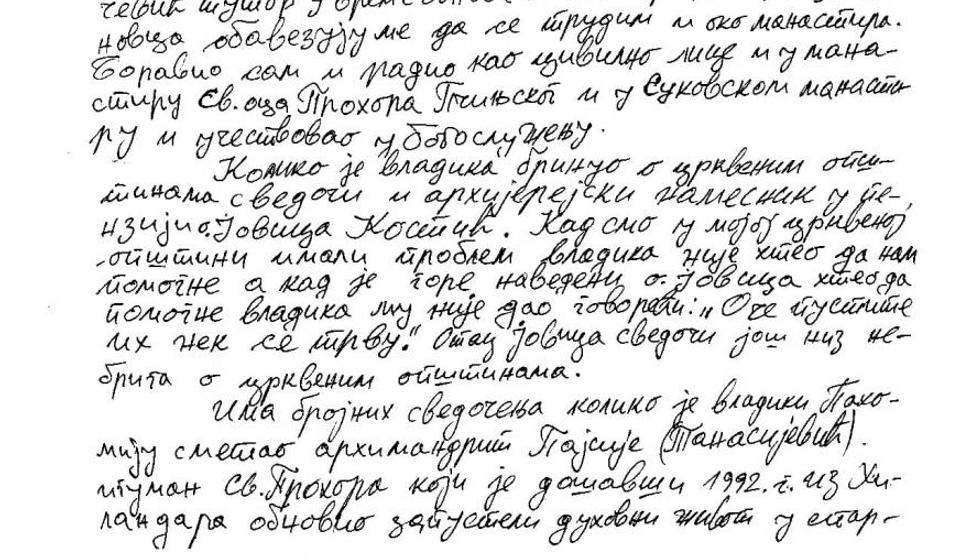 новца обавезују ме да се трудим и око манастира.
Боравио сам и радио као цивилно лице и у мана-
стиру Св. оца Прохора Пчињског и у Суковском манасти
ру и учествовао у богослужењу.
Колико је владика бринуо о црквеним опш-
тинама сведочи и архијерејски намесник у пе-
нзији о. Јовица Костић. Кад смо у мојој црквеној
општини имали проблем владика није хтео да нам
помогне а кад је горе наведени о. Јовица хтео да
помогне владика му није дао говорећи: „Оче пустите
их нек се трву." Отац Јовица сведочи још низ не-
брига о црквеним општинама.
Има бројних сведочења колико је владики Пахо-
мију сметао архимандрит Пајсије (Танасијевић).
игуман Св. Прохора који је дошавши 1992. г. из Хи-
ландара обновио запустели духовни живот у стар-